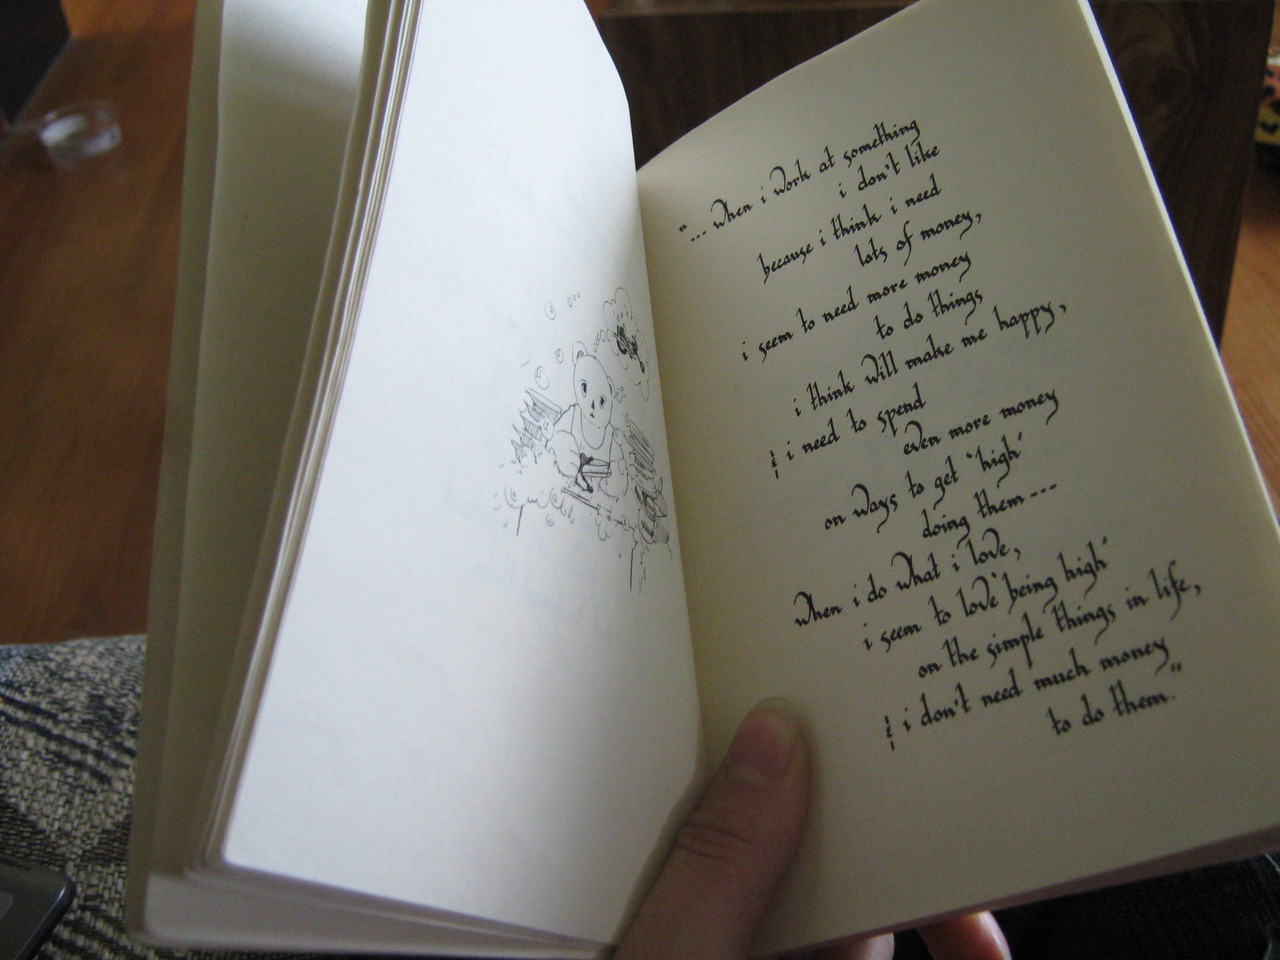 “... when i work at something
i don't like
because i think i need
lots of money,
i seem to need more money
to do things
i think will make me happy,
& i need to spend
even more money
on ways to get 'high'
doing them ---
when i do what i love,
i seem to love 'being high'
on the simple things in life,
& i don't need much money
to do them.”